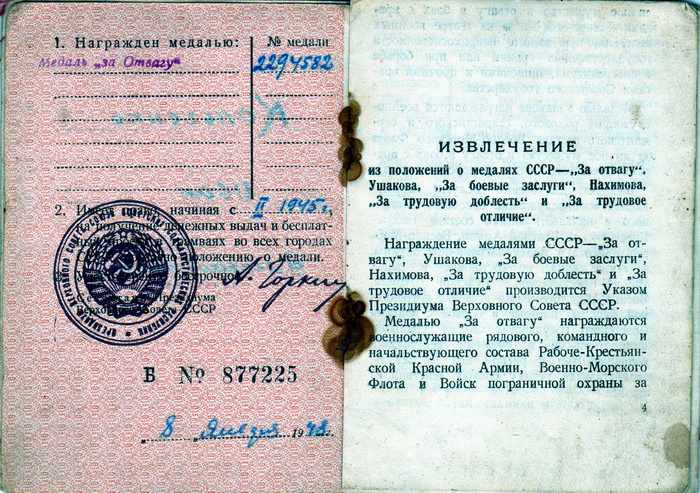 1. Награжден медалью:
№ медали
Медаль „за Отвагу“
2294582
2. начиная с II 1945 г.
получение денежных выдач и бесплат-
во всех городах
положению о медали.
А. Горкин
Президиума
Верховного Совета СССР
Б № 877225
8 Января 1948 г.
ИЗВЛЕЧЕНИЕ
из положений о медалях СССР—„За отвагу“,
Ушакова, „За боевые заслуги“, Нахимова,
„За трудовую доблесть“ и „За трудовое
отличие“.
Награждение медалями СССР—„За от-
вагу“, Ушакова, „За боевые заслуги“,
Нахимова, „За трудовую доблесть“ и „За
трудовое отличие“ производится Указом
Президиума Верховного Совета СССР.
Медалью „За отвагу“ награждаются
военнослужащие рядового, командного и
начальствующего состава Рабоче-Крестьян-
ской Красной Армии, Военно-Морского
Флота и Войск пограничной охраны за
4